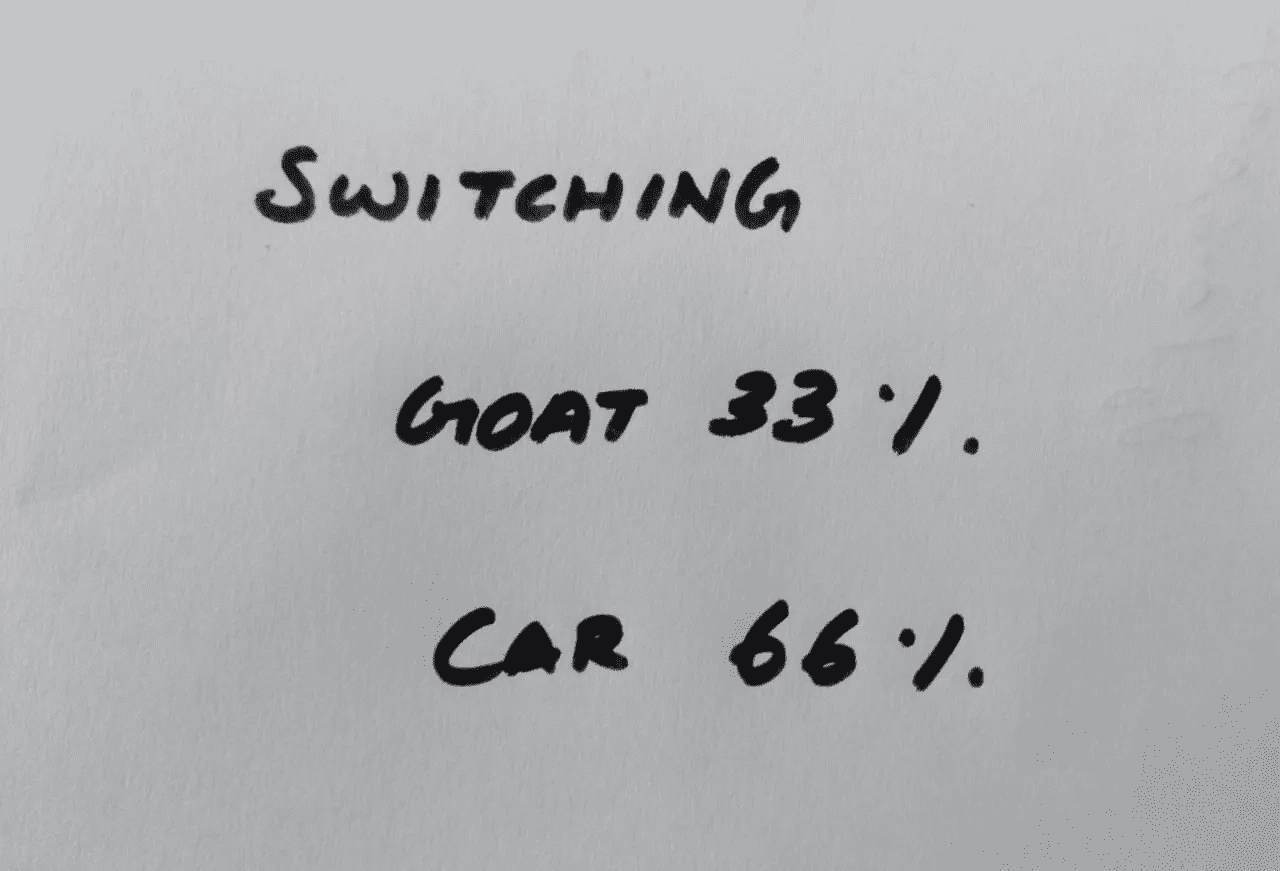 SWITCHING
GOAT 33%
CAR 66%